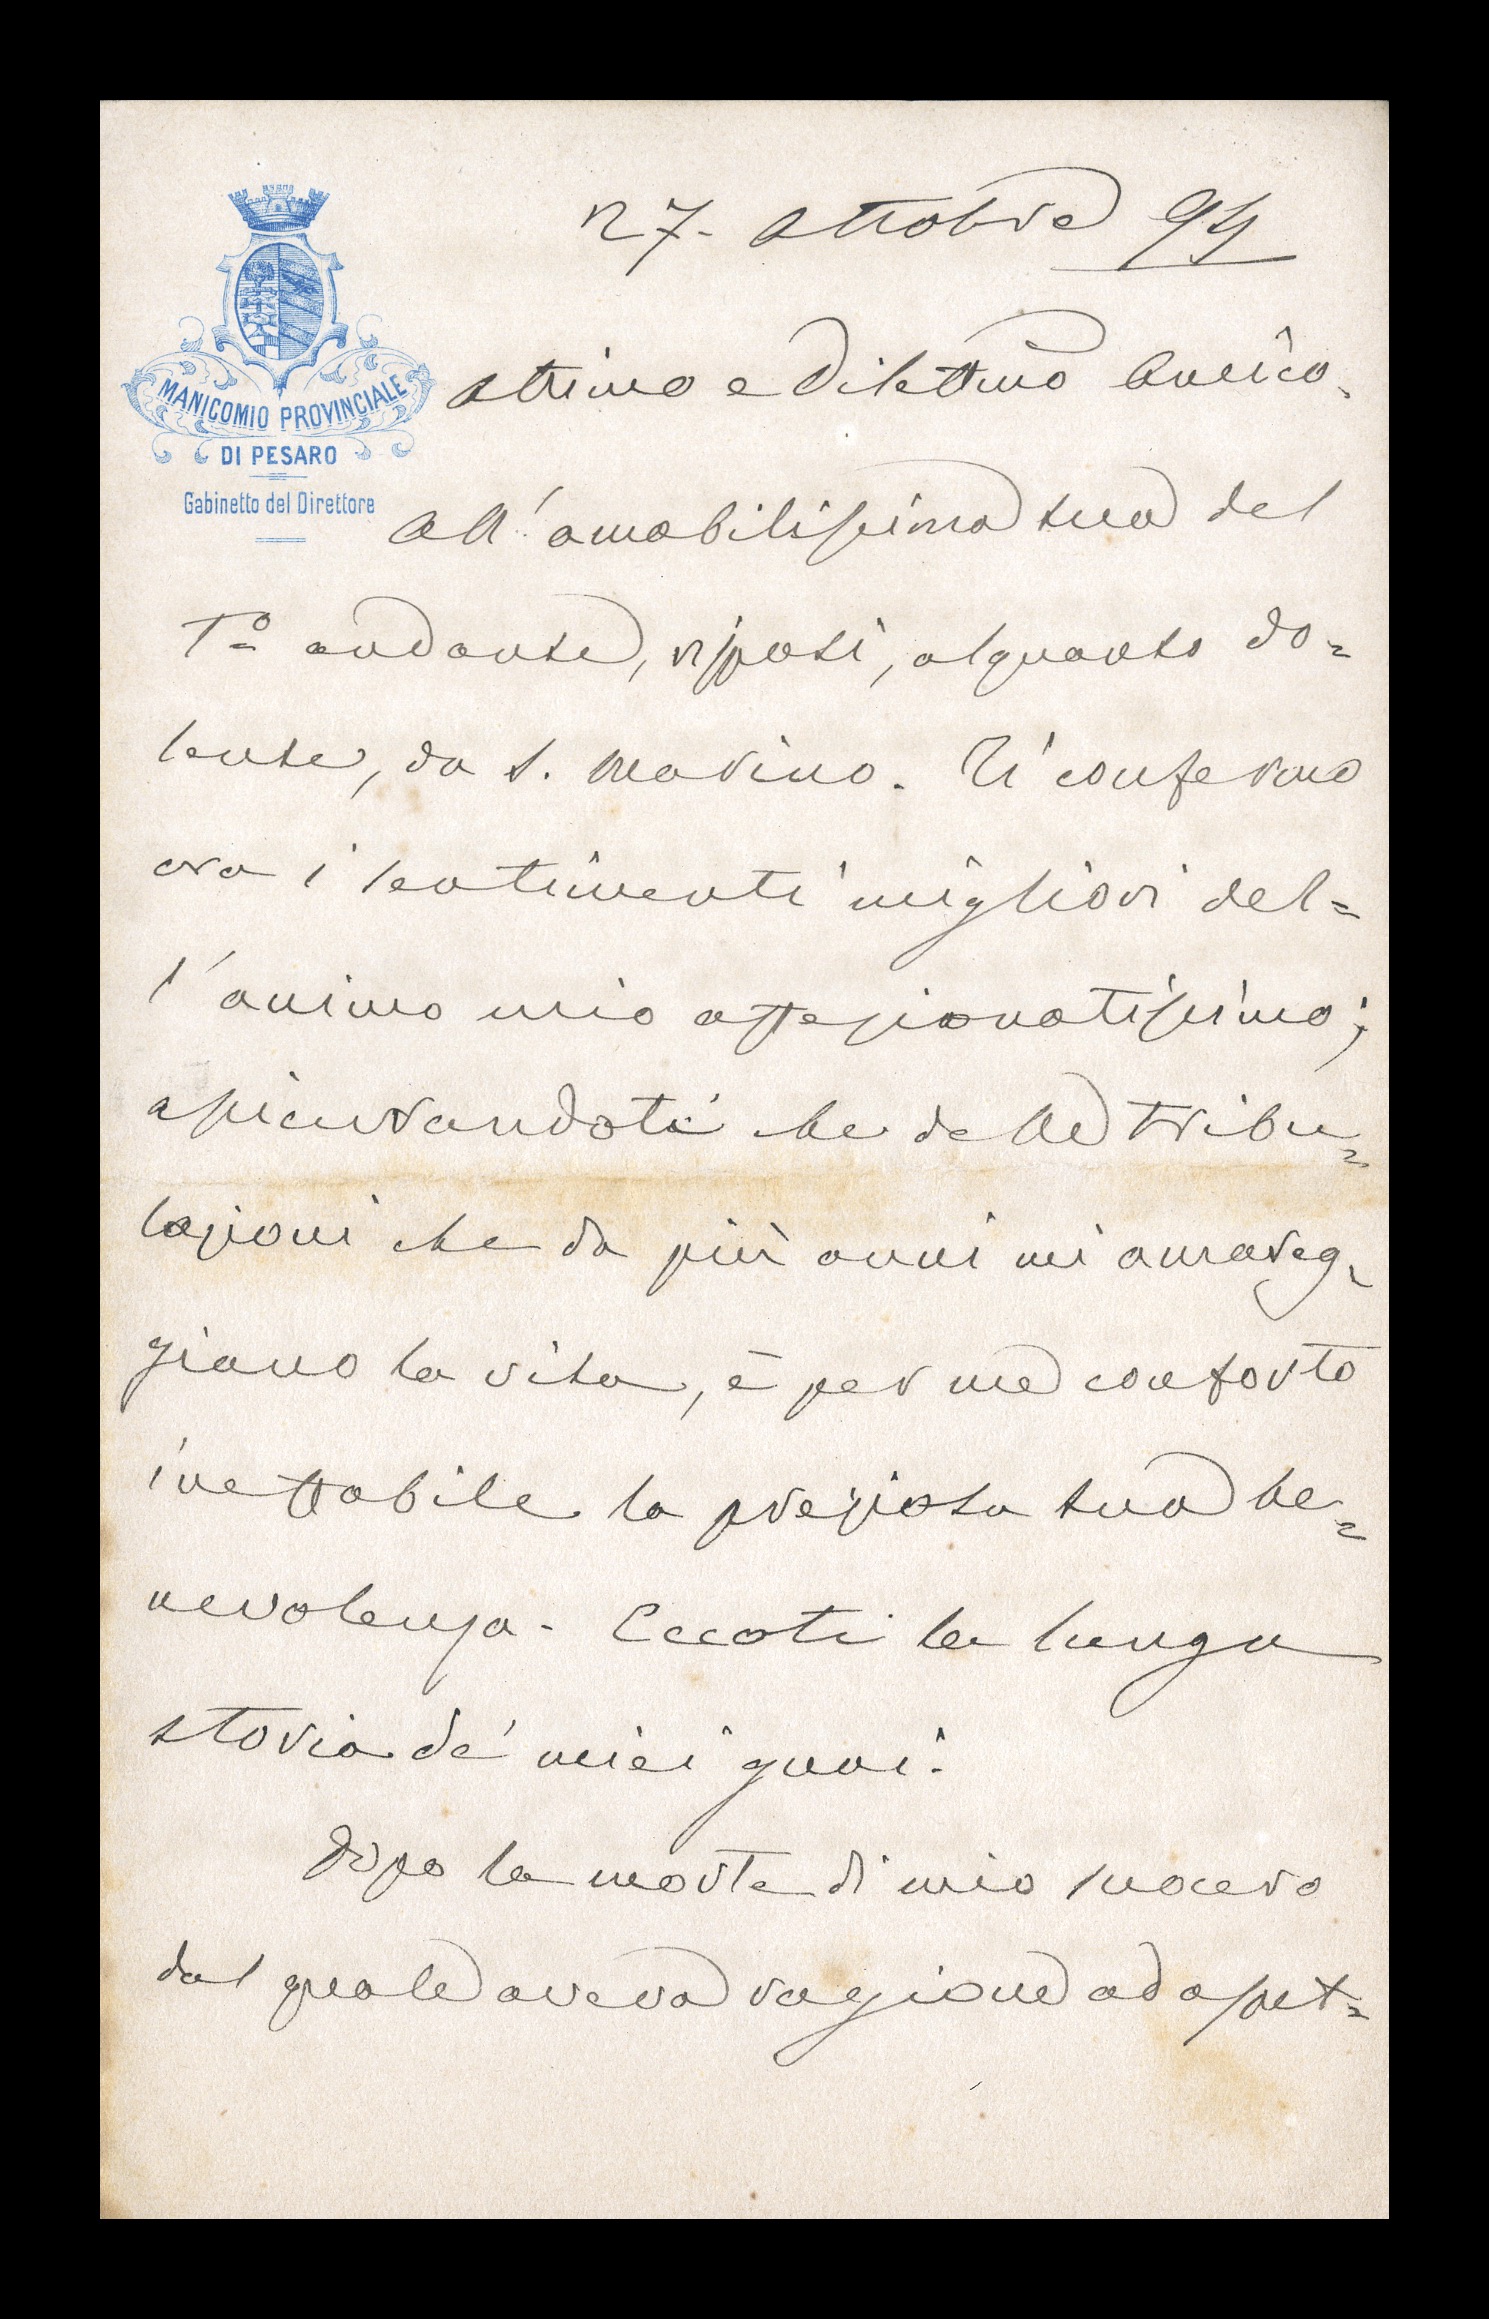 27. ottobre 94
MANICOMIO PROVINCIALE
DI PESARO
Gabinetto del Direttore
Ottimo e Dilettmo Amico.
All'amabilissima tua del
1º andante, risposi, alquanto do=
lente, da S. Marino. Ti confermo
ora i sentimenti migliori del=
l'animo mio affezionatissimo;
assicurandoti che delle tribu=
lazioni che da più anni mi amareg=
giano la vita, è per me conforto
ineffabile la preziosa tua be=
nevolenza. Eccoti la lunga
storia de' miei guai.
Dopo la morte di mio suocero
dal quale aveva ragione ad aspet=